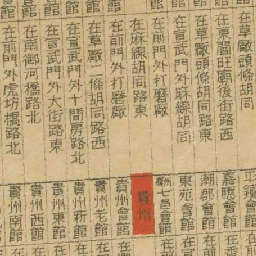 在草廠頭條胡同
在東閣旺廟後街路西
在草廠頭條胡同路東
在宣武門外麻線胡同
在前門外打磨廠
在麻線胡同路東
在前門外打磨廠
在草廠二條胡同路西
在宣武門外十間房路北
在宣武門外大街路東
在南御河橋路北
在前門外虎坊橋路北
平鎮會館
嘉應會館
潮郡會館
東莞會館
七邑會館
貴州
貴州會館
貴州老館
貴州新館
貴州東館
貴州西館
貴州南館